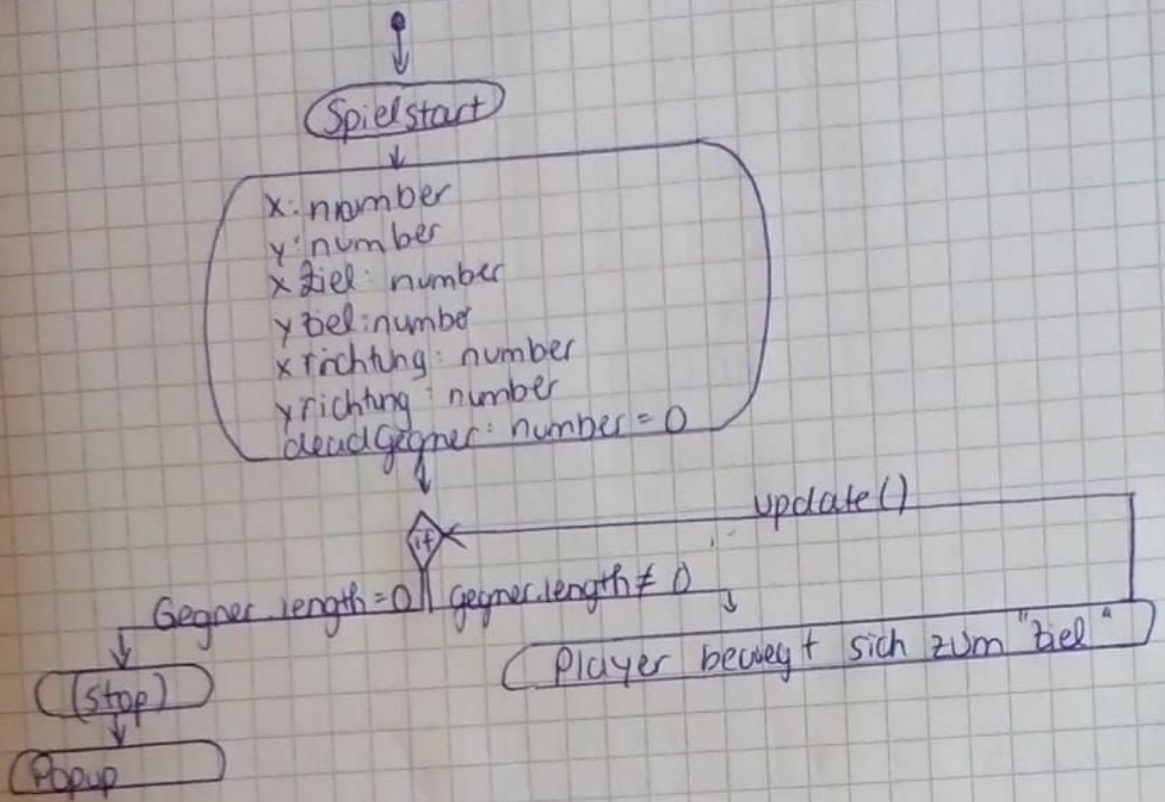 Spielstart
x: number
y: number
x Ziel: number
y Ziel: number
x richtung: number
y richtung: number
deadGegner: number = 0
update()
if
Gegner.length = 0
gegner.length ≠ 0
Player bewegt sich zum "Ziel"
(Stop)
Popup